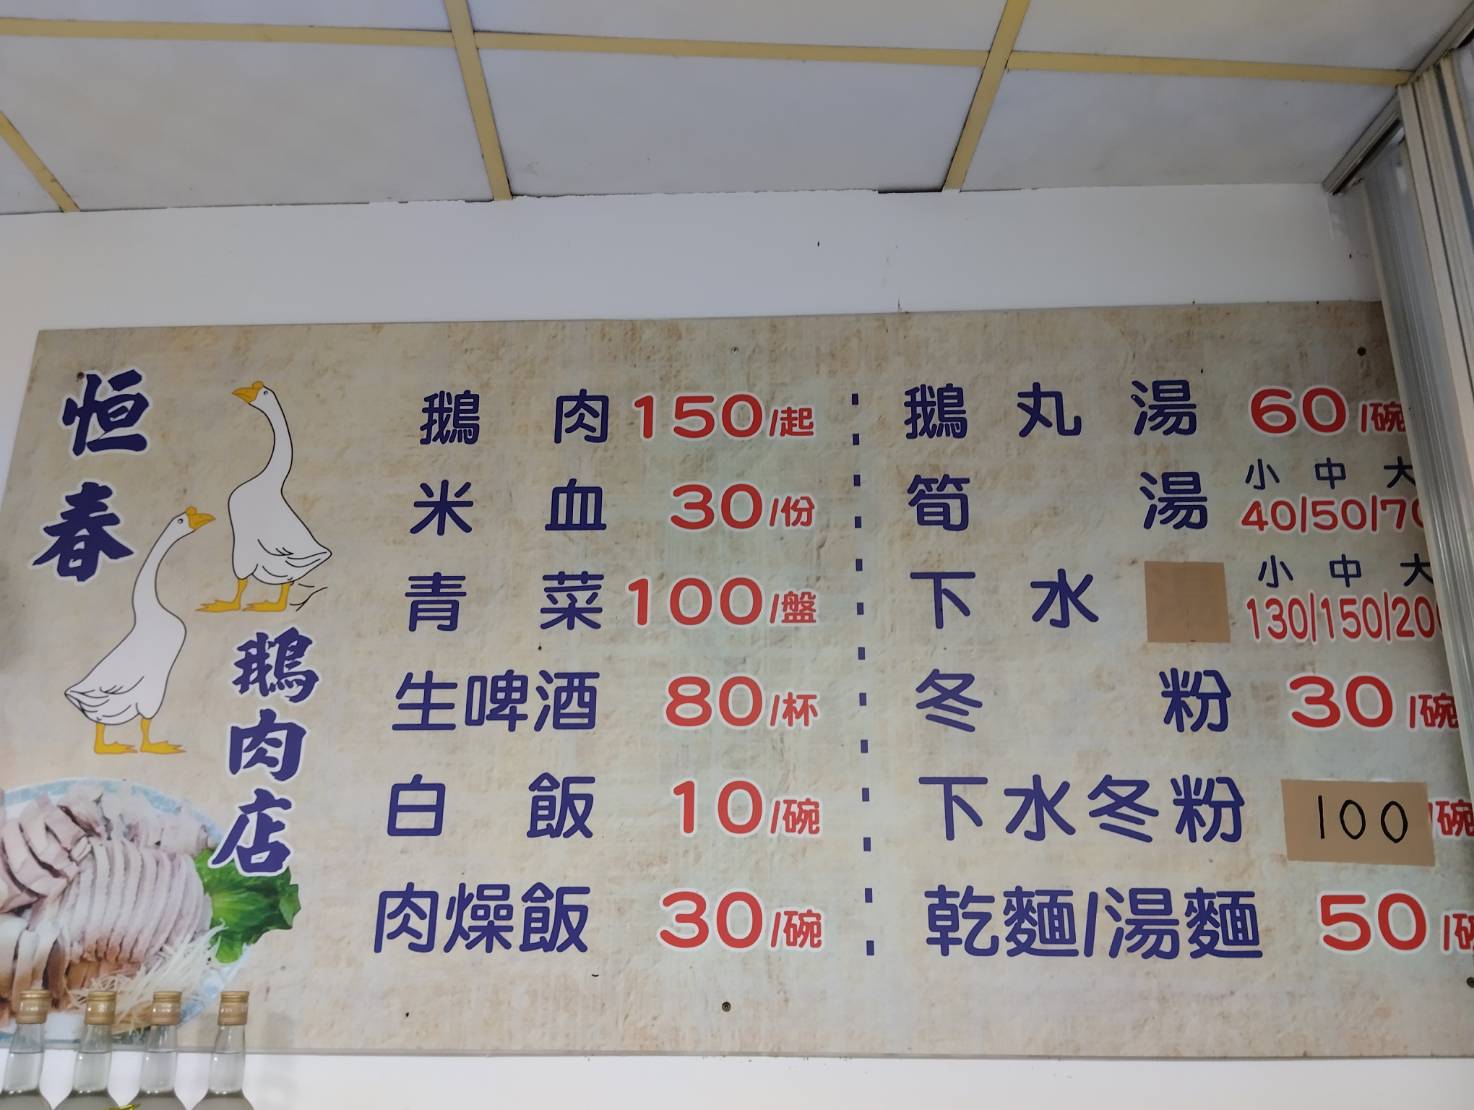 恒春
鵝肉店
鵝肉 150/起
米血 30/份
青菜 100/盤
生啤酒 80/杯
白飯 10/碗
肉燥飯 30/碗
鵝丸湯 60/碗
小 中 大
筍湯 40/50/70
小 中 大
下水 130/150/200
冬粉 30/碗
下水冬粉 100/碗
乾麵/湯麵 50/碗